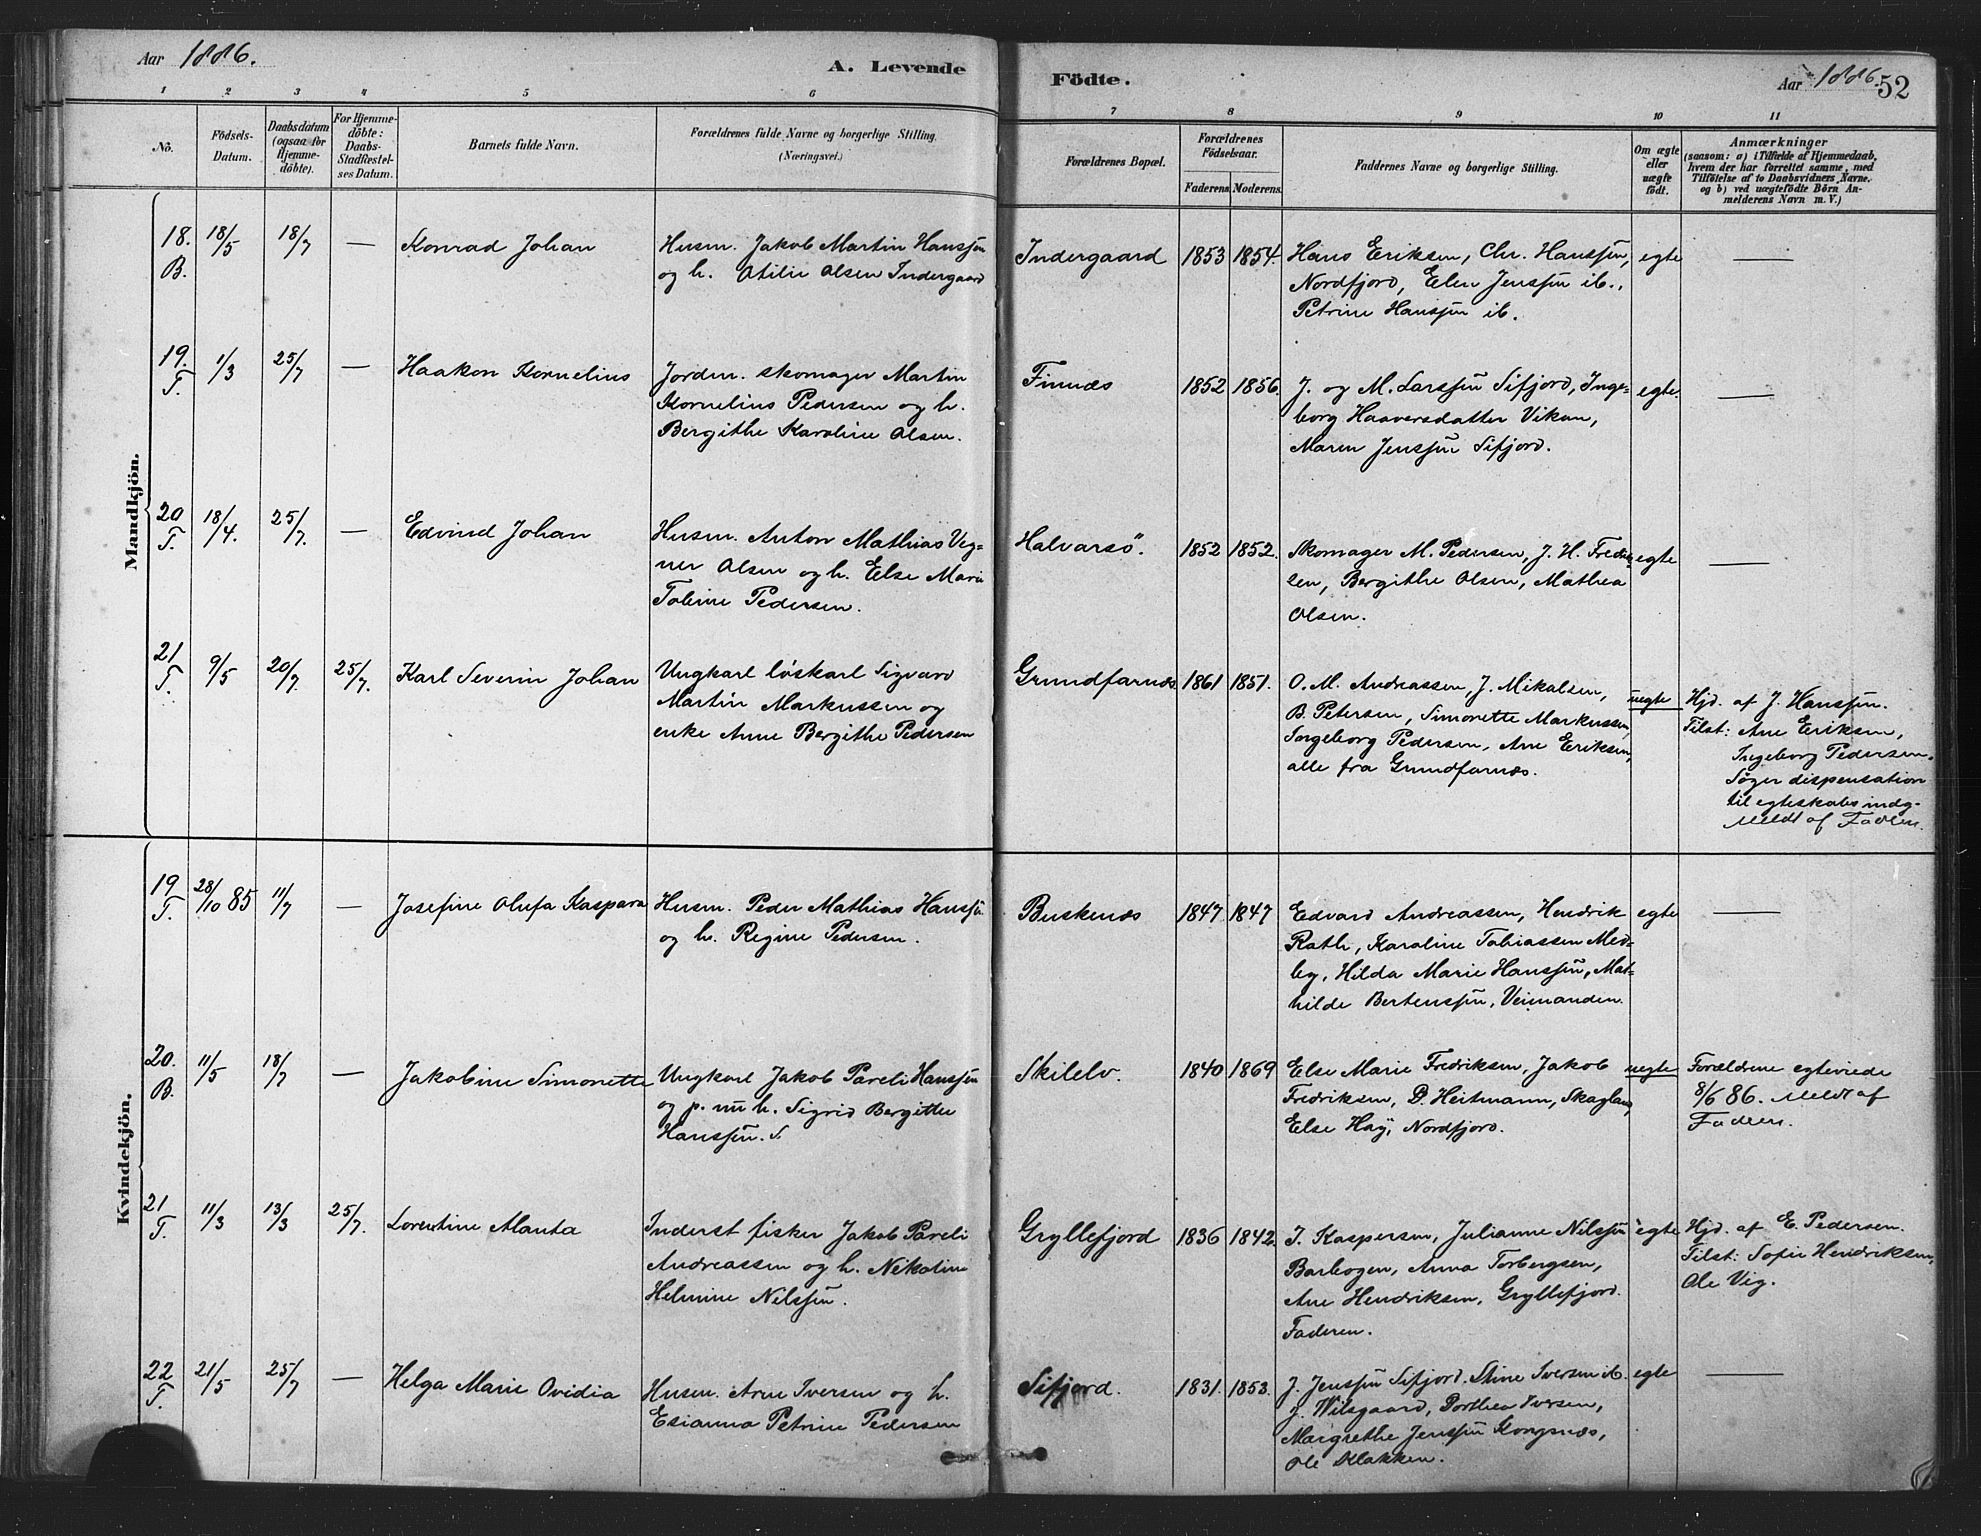 Aar 1886.
A. Levende
Födte.
Aar 1886.
52
1 2 3 4 5 6
7 8 9 10 11
No.
Födsels-
Datum.
Daabsdatum
(ogsaa for
Hjemme-
döbte).
For Hjemme-
döbte:
Daabs-
Stadfæstel-
ses Datum.
Barnets fulde Navn.
Forældrenes fulde Navne og borgerlige Stilling.
(Næringsvei.)
Forældrenes Bopæl.
Forældrenes
Födselsaar.
Faderens. Moderens.
Faddernes Navne og borgerlige Stilling.
Om ægte
eller
uægte
födt.
Anmærkninger
(saasom: a) i Tilfælde af Hjemmedaab,
hvem der har forrettet samme, med
Tilföielse af to Daabsvidners Navne.
og b) ved uægtefödte Börn An-
melderens Navn m. V.)
Mandkjön.
18.
B.
18/5
18/7
—
Konrad Johan
Husm. Jakob Martin Hanssen
og h. Otilie Olsen Indergaard
Indergaard
1853
1854.
Hans Eriksen, Chr. Hanssen,
Nordfjord, Elen Jenssen ib.,
Petrine Hanssen ib.
egte
—
19.
T.
1/3
25/7
—
Haakon Kornelius
Jordm. skomager Martin
Kornelius Pedersen og h.
Bergithe Karoline Olsen.
Finnæs
1852
1856.
J. og M. Larssen Sifjord, Inge-
borg Haaversdatter Vikan,
Maren Jenssen Sifjord.
egte.
—
20
T.
18/4.
25/7.
—
Edvind Johan
Husm. Anton Mathias Veg-
ner Olsen og h. Else Marie
Tobine Pedersen.
Halvarsö.
1852
1852.
Skomager M. Pedersen, J. H. Fredrik-
sen, Bergithe Olsen, Mathea
Olsen.
egte
—
21
T.
9/5
20/7.
25/7.
Karl Severin Johan
Ungkarl løskarl Sigvard
Martin Markussen og
enke Anne Bergithe Pedersen
Grundfarnæs
1861
1851.
O. M. Andreassen, J. Mikalsen,
B. Petersen, Simonette Markussen,
Ingeborg Pedersen, Ane Eriksen,
alle fra Grundfarnæs.
uegte
Hjd. af J. Hanssen.
Tilst: Ane Eriksen,
Ingeborg Pedersen.
Søger dispensation
til egteskabs indg.
Meldt af Faderen.
Kvindekjön.
19
T.
28/10 85
11/7
—
Josefine Olufa Kaspara
Husm. Peder Mathias Hanssen
og h. Regine Pedersen.
Buskenæs
1847
1847
Edvard Andreassen, Hendrik
Rath, Karoline Tobiassen Med-
by, Hilda Marie Hanssen, Mat-
hilde Bertenssen, Veimanden.
egte
—
20.
B.
11/5
18/7
—
Jakobine Simonette
Ungkarl Jakob Pareli Hanssen
og p. nu h. Sigrid Bergitte
Hanssen. S.
Skilelv.
1840
1869
Else Marie Fredriksen, Jakob
Fredriksen, D. Heitmann, Skagland,
Else Hay, Nordfjord.
uegte
Forældrene egteviede
8/6 86. Meldt af
Faderen.
21
T.
11/3
13/3
25/7.
Lorentine Alanta
Inderst fisker Jakob Pareli
Andreassen og h. Nikoline
Helmine Nilssen.
Gryllefjord
1836
1842.
I. Kaspersen, Julianne Nilssen
Barbogen, Anna Torbergsen,
Ane Hendriksen, Gryllefjord.
Faderen.
egte
Hjd. af E. Pedersen.
Tilst: Sofie Hendriksen,
Ole Vig.
22
T.
21/5
25/7
—
Helga Marie Ovidia
Husm. Arne Iversen og h.
Esianna Petrine Pedersen
Sifjord.
1831.
1853.
J. Jenssen Sifjord. Stine Iversen ib.
J. Wilsgaard, Dorthea Iversen,
Margrethe Jenssen Kongsnæs,
Ole Klakken.
egte
—